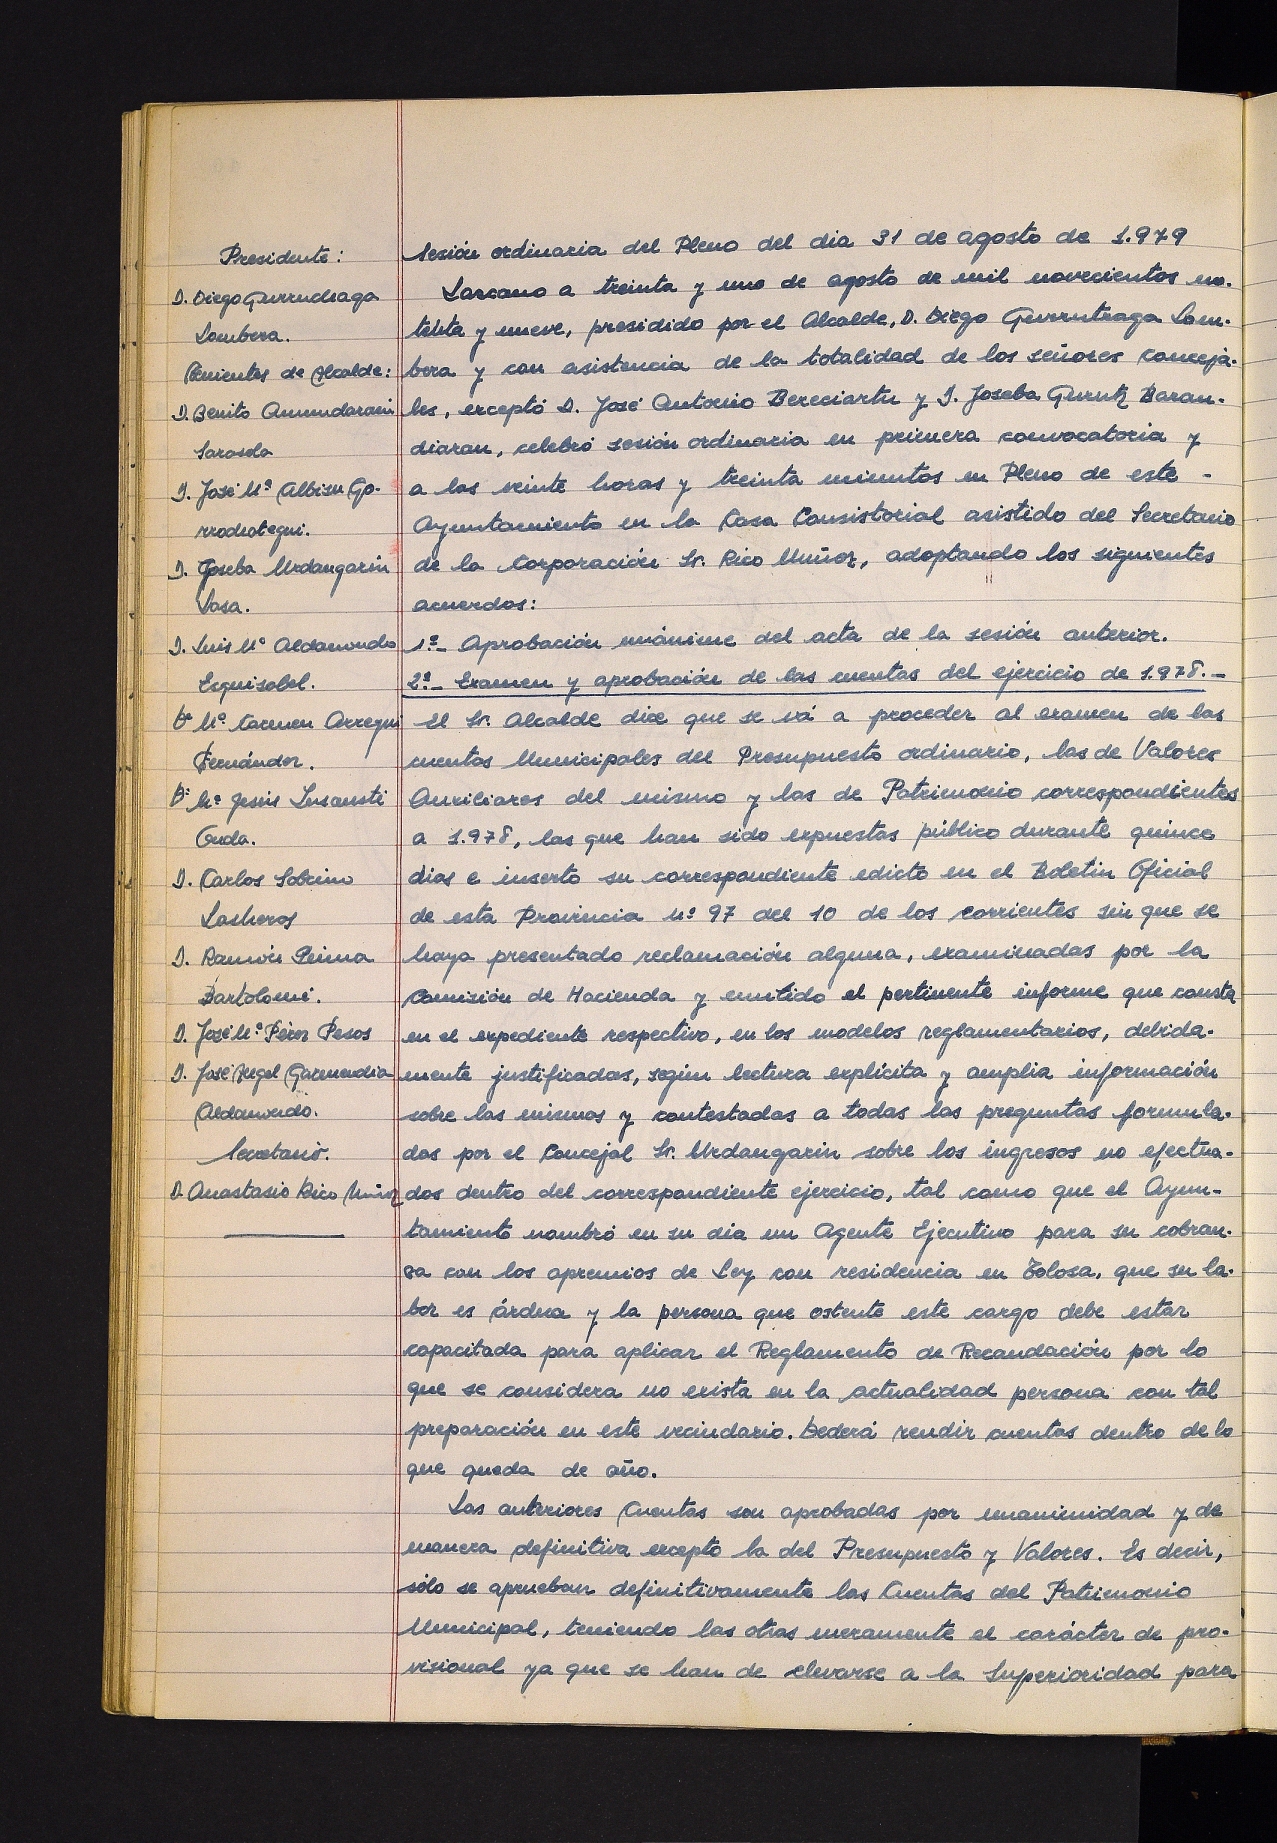 Presidente:
D. Diego Gurruchaga
Lambera.
Tenientes de Alcalde:
D. Benito Amundarain
Sarasola
D. José Mª Albisu Go-
rrochategui.
D. Joseba Urdangarin
Lasa.
D. Luis Mª Aldamondo
Esquisabel.
Dª Mª Carmen Arregui
Fernández.
Dª Mª Jesús Insausti
Onda.
D. Carlos Sobrino
Lasheros
D. Ramón Peinna
Bartolomé.
D. José Mª Pérez Pesos
D. José Angel Garmendia
Aldamondo.
Secretario.
D. Anastasio Rico Muñoz
Sesión ordinaria del Pleno del dia 31 de agosto de 1.979
Lazcano a treinta y uno de agosto de mil novecientos no-
tenta y nueve, presidido por el Alcalde, D. Diego Gurrutxaga Lam-
bera y con asistencia de la totalidad de los señores conceja-
les, exceptó D. José Antonio Bereciartu y D. Joseba Gurutz Baran-
diaran, celebró sesión ordinaria en primera convocatoria y
a las veinte horas y treinta minutos en Pleno de este -
Ayuntamiento en la Casa Consistorial asistido del Secretario
de la Corporación Sr. Rico Muñoz, adoptando los siguientes
acuerdos:
1º- Aprobación unánime del acta de la sesión anterior.
2º- Examen y aprobación de las cuentas del ejercicio de 1.978.-
El Sr. Alcalde dice que se vá a proceder al examen de las
cuentas Municipales del Presupuesto ordinario, las de Valores
Auxiliares del mismo y las de Patrimonio correspondientes
a 1.978, las que han sido expuestas público durante quince
dias e inserto su correspondiente edicto en el Boletin Oficial
de esta Provincia nº 97 del 10 de los corrientes sin que se
haya presentado reclamación alguna, examinadas por la
Comisión de Hacienda y emitido el pertinente informe que consta
en el expediente respectivo, en los modelos reglamentarios, debida-
mente justificadas, según lectura explícita y amplia información
sobre las mismas y contestadas a todas las preguntas formula-
das por el Concejal Sr. Urdangarin sobre los ingresos no efectua-
dos dentro del correspondiente ejercicio, tal como que el Ayun-
tamiento nombró en su dia un Agente Ejecutivo para su cobran-
za con los apremios de Ley con residencia en Tolosa, que su la-
bor es árdua y la persona que ostente este cargo debe estar
capacitada para aplicar el Reglamento de Recaudación por lo
que se considera no exista en la actualidad persona con tal
preparación en este vecindario. Deberá rendir cuentas dentro de lo
que queda de año.
Las anteriores Cuentas son aprobadas por unanimidad y de
manera definitiva excepto la del Presupuesto y Valores. Es decir,
sólo se aprueban definitivamente las Cuentas del Patrimonio
Municipal, teniendo las otras meramente el carácter de pro-
visional ya que se han de elevarse a la Superioridad para